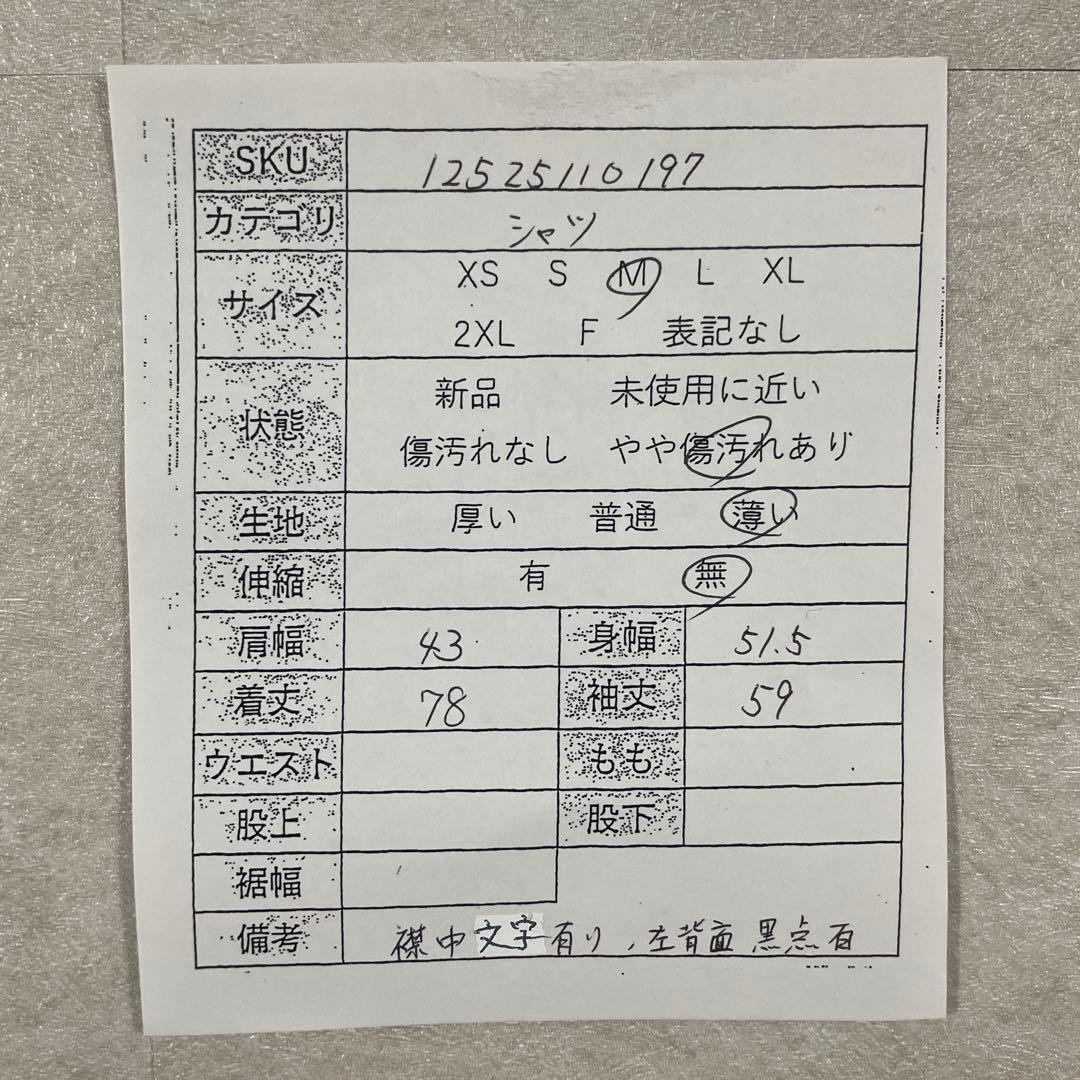 SKU 12525110197
カテゴリ シャツ
サイズ XS S M L XL
2XL F 表記なし
状態 新品 未使用に近い
傷汚れなし やや傷汚れあり
生地 厚い 普通 薄い
伸縮 有 無
肩幅 43 身幅 51.5
着丈 78 袖丈 59
ウエスト もも
股上 股下
裾幅
備考 襟中文字有り、左背面黒点有